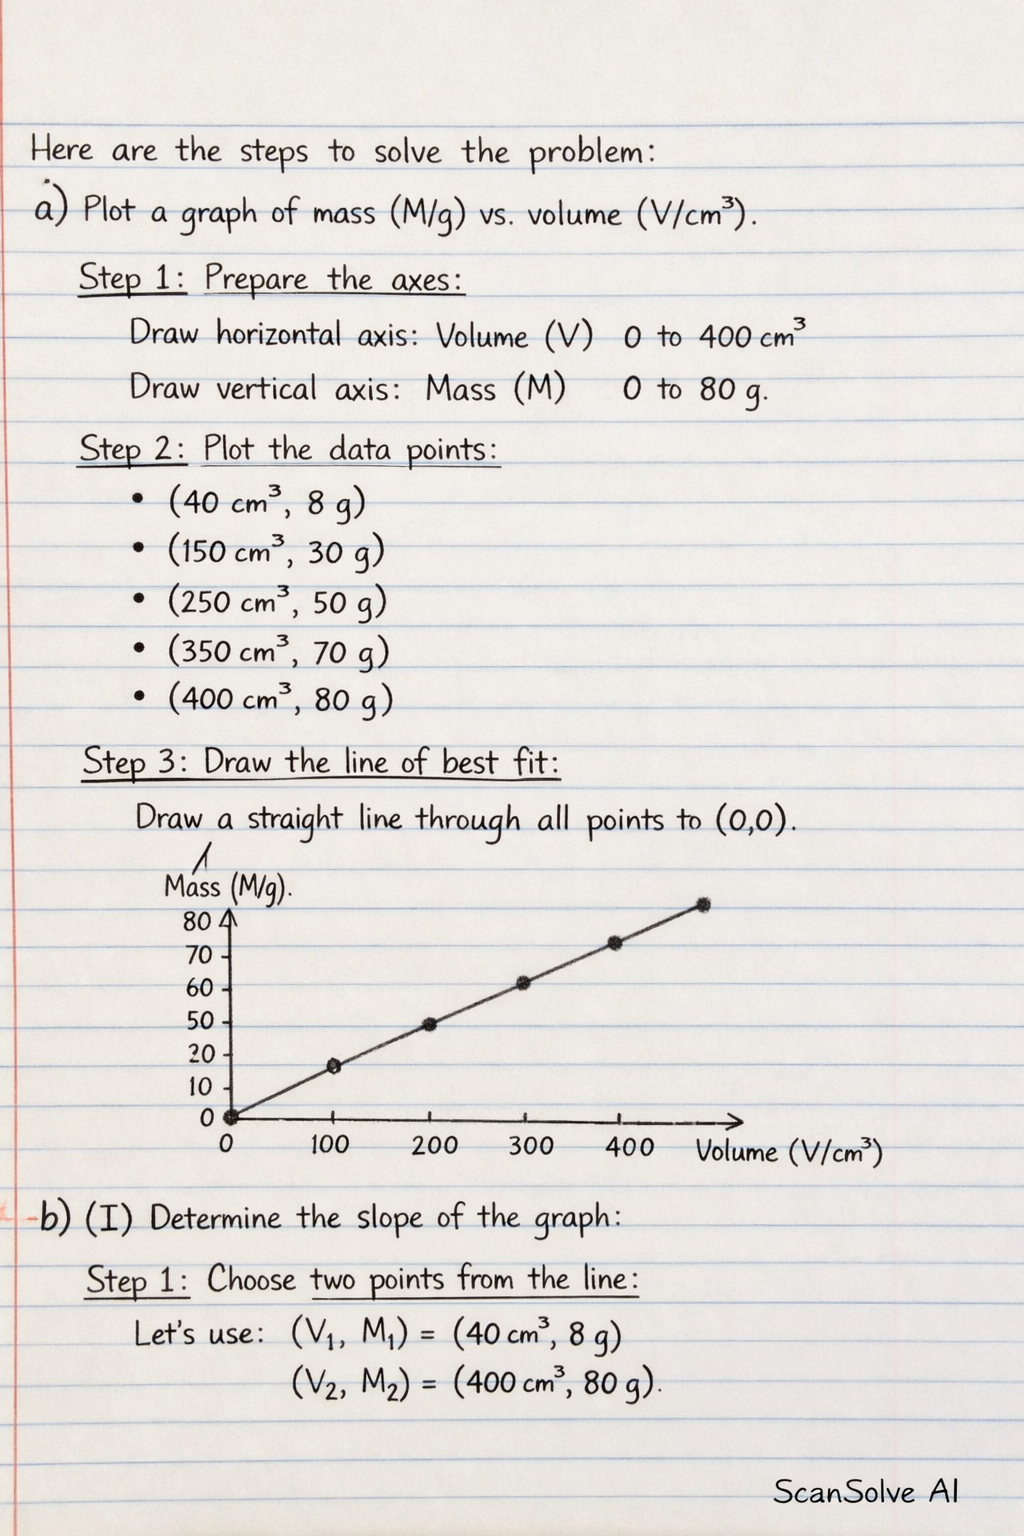 Here are the steps to solve the problem:
a) Plot a graph of mass (M/g) vs. volume (V/cm³).
Step 1: Prepare the axes:
Draw horizontal axis: Volume (V) 0 to 400 cm³
Draw vertical axis: Mass (M) 0 to 80 g.
Step 2: Plot the data points:
• (40 cm³, 8 g)
• (150 cm³, 30 g)
• (250 cm³, 50 g)
• (350 cm³, 70 g)
• (400 cm³, 80 g)
Step 3: Draw the line of best fit:
Draw a straight line through all points to (0,0).
Mass (M/g).
80
70
60
50
20
10
0
0 100 200 300 400 Volume (V/cm³)
b) (I) Determine the slope of the graph:
Step 1: Choose two points from the line:
Let's use: (V₁, M₁) = (40 cm³, 8 g)
(V₂, M₂) = (400 cm³, 80 g).
ScanSolve AI